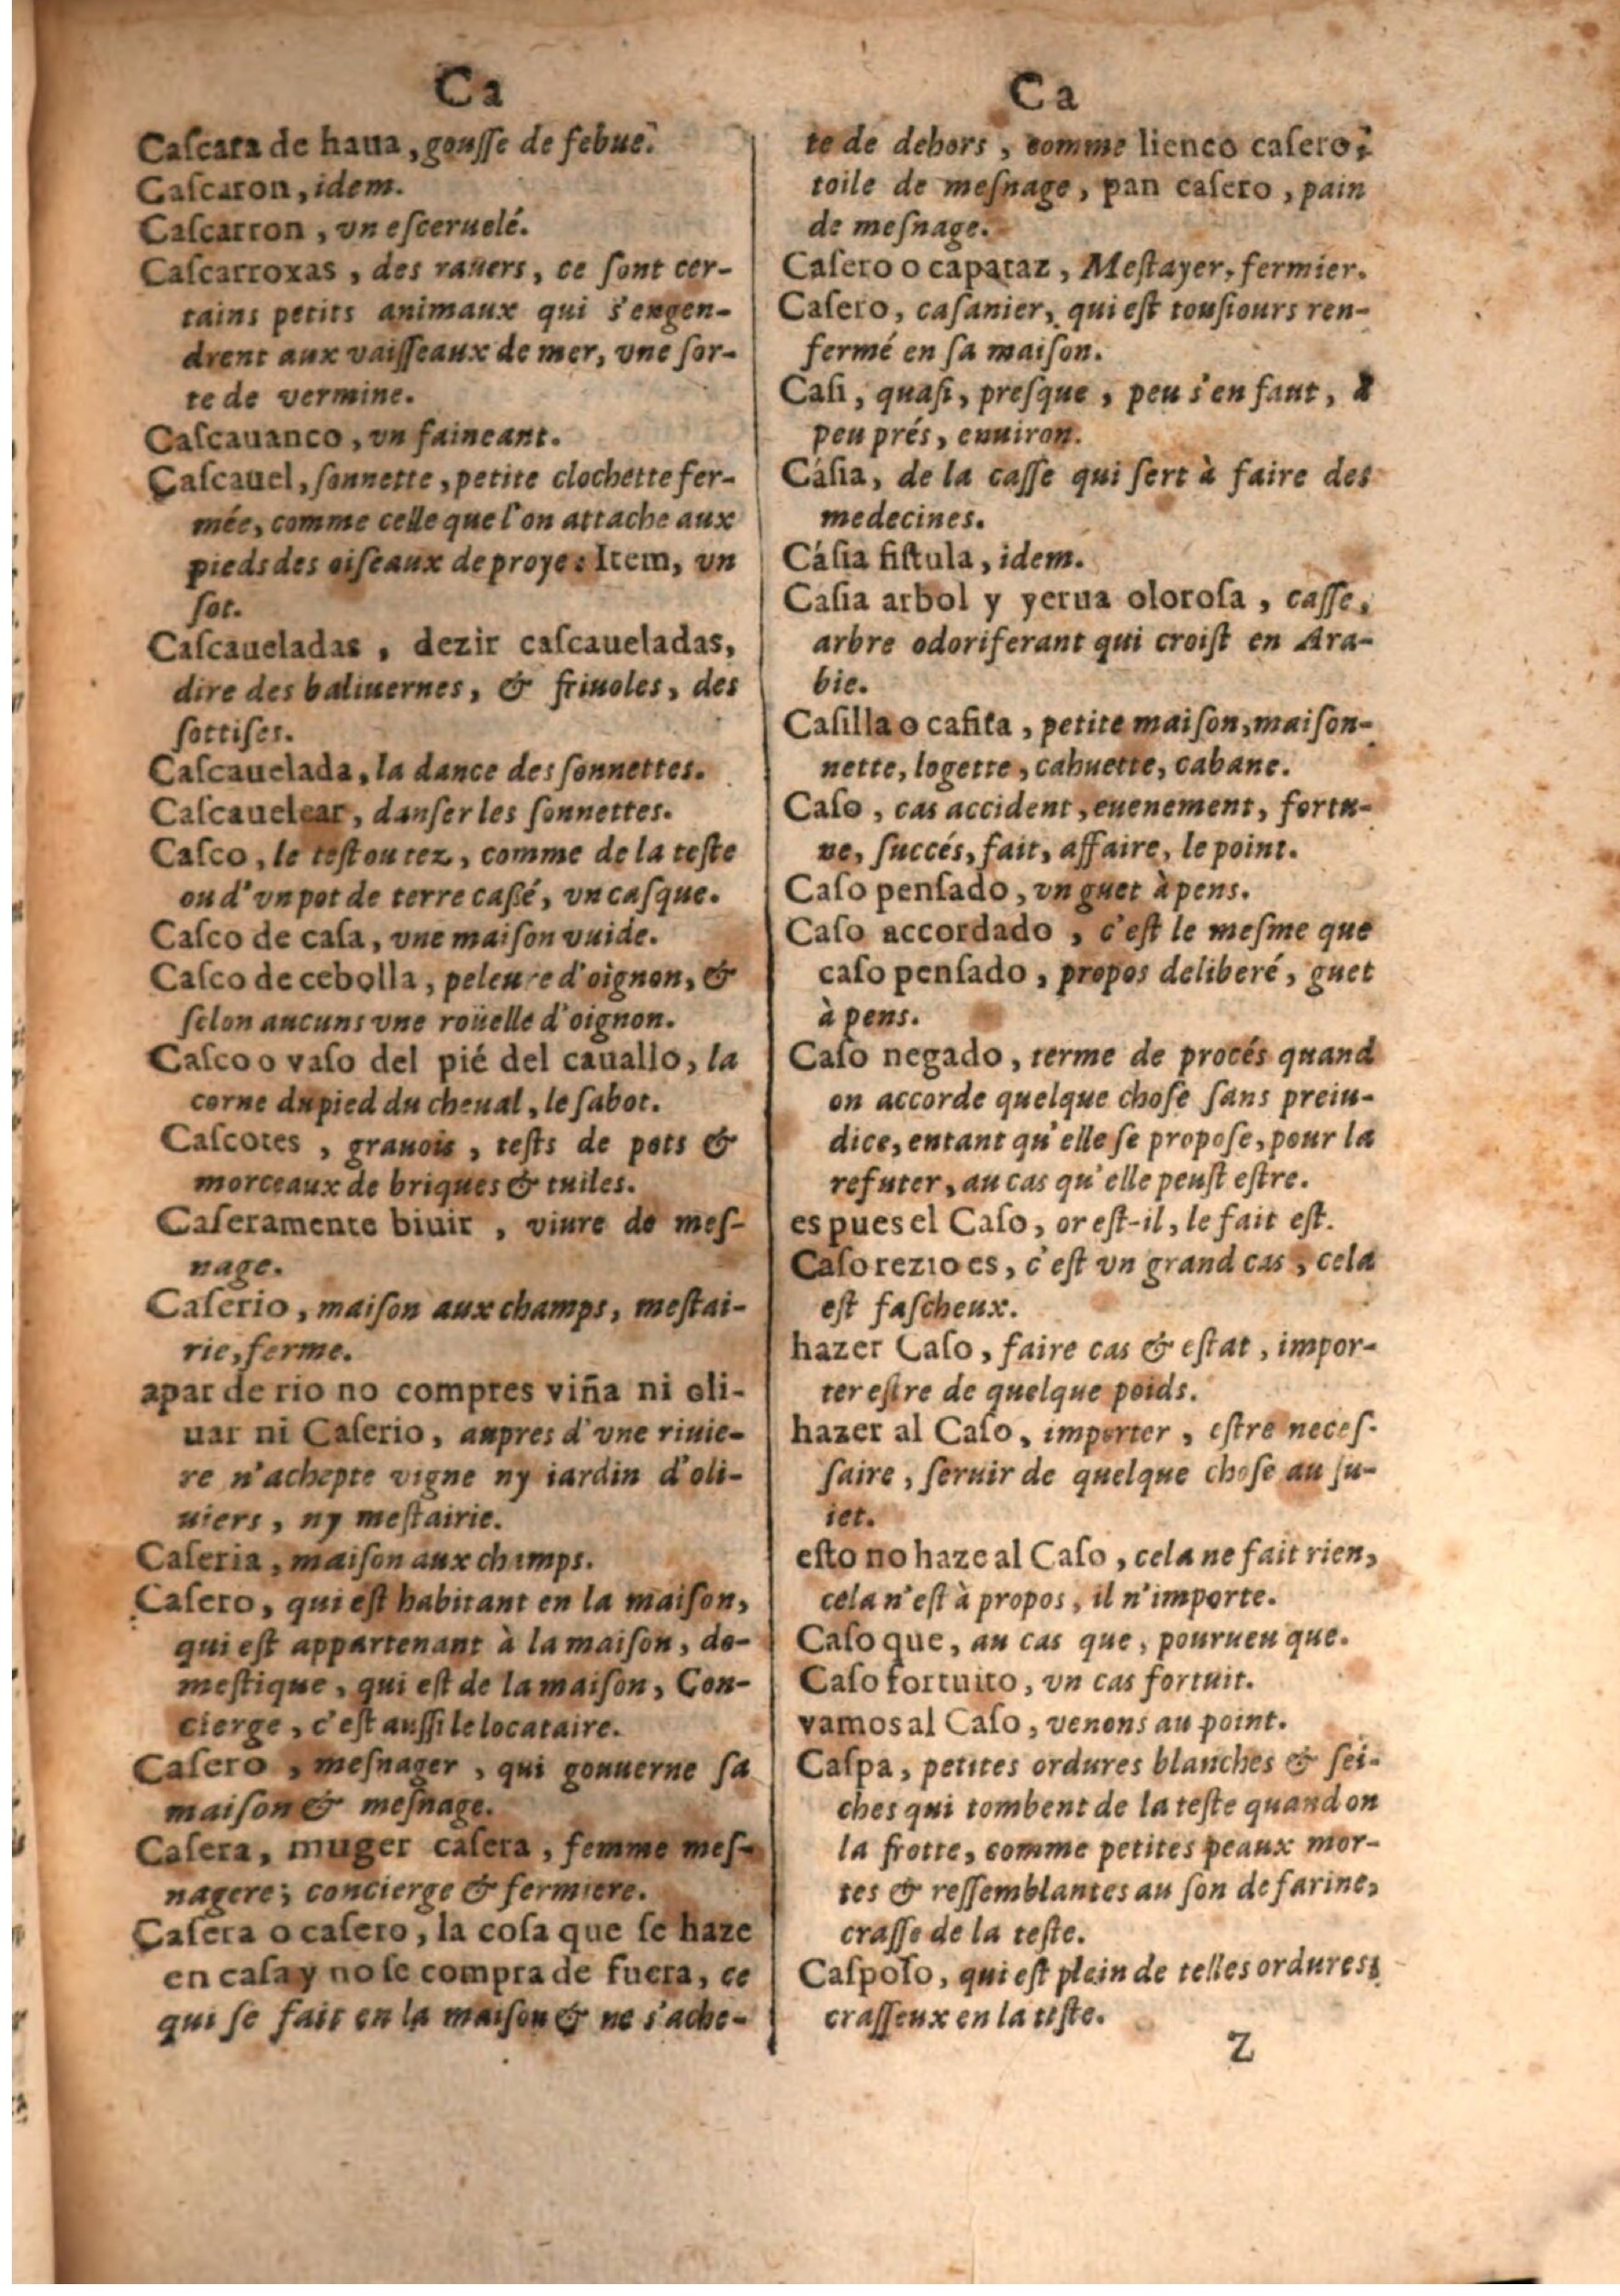 Ca
Caſcara de haua, gouſſe de febue.
Caſcaron, idem.
Caſcarron, vn eſceruelé.
Caſcarroxas, des rauers, ce ſont cer-
tains petits animaux qui s'engen-
drent aux vaiſſeaux de mer, vne ſor-
te de vermine.
Caſcauanco, vn faineant.
Caſcauel, ſonnette, petite clochette fer-
mée, comme celle que l'on attache aux
pieds des oiſeaux de proye: Item, vn
ſot.
Caſcaueladas, dezir caſcaueladas,
dire des baliuernes, & friuoles, des
ſottiſes.
Caſcauelada, la dance des ſonnettes.
Caſcauelear, danſer les ſonnettes.
Caſco, le teſt ou tez, comme de la teſte
ou d'vn pot de terre caſſé, vn caſque.
Caſco de caſa, vne maiſon vuide.
Caſco de cebolla, peleure d'oignon, &
ſelon aucuns vne roüelle d'oignon.
Caſco o vaſo del pié del cauallo, la
corne du pied du cheual, le ſabot.
Caſcotes, grauois, teſts de pots &
morceaux de briques & tuiles.
Caſeramente biuir, viure de meſ-
nage.
Caſerio, maiſon aux champs, meſtai-
rie, ferme.
apar de rio no compres viña ni oli-
uar ni Caſerio, aupres d'vne riuie-
re n'achepte vigne ny iardin d'oli-
uiers, ny meſtairie.
Caſeria, maiſon aux champs.
Caſero, qui eſt habitant en la maiſon,
qui eſt appartenant à la maiſon, do-
meſtique, qui eſt de la maiſon, Con-
cierge, c'eſt auſſi le locataire.
Caſero, meſnager, qui gouuerne ſa
maiſon & meſnage.
Caſera, muger caſera, femme meſ-
nagere; concierge & fermiere.
Caſera o caſero, la coſa que ſe haze
en caſa y no ſe compra de fuera, ce
qui ſe fait en la maiſon & ne s'ache-
Ca
te de dehors, comme lienco caſero;
toile de meſnage, pan caſero, pain
de meſnage.
Caſero o capataz, Meſtayer, fermier.
Caſero, caſanier, qui eſt touſiours ren-
fermé en ſa maiſon.
Caſi, quaſi, preſque, peu s'en faut, à
peu prés, enuiron.
Cáſia, de la caſſe qui ſert à faire des
medecines.
Cáſia fiſtula, idem.
Caſia arbol y yerua oloroſa, caſſe,
arbre odoriferant qui croiſt en Ara-
bie.
Caſilla o caſita, petite maiſon, maiſon-
nette, logette, cahuette, cabane.
Caſo, cas accident, euenement, fortu-
ne, ſuccés, fait, affaire, le point.
Caſo penſado, vn guet à pens.
Caſo accordado, c'eſt le meſme que
caſo penſado, propos deliberé, guet
à pens.
Caſo negado, terme de procés quand
on accorde quelque choſe ſans preiu-
dice, entant qu'elle ſe propoſe, pour la
refuter, au cas qu'elle peuſt eſtre.
es pues el Caſo, or eſt-il, le fait eſt.
Caſo rezio es, c'eſt vn grand cas, cela
eſt faſcheux.
hazer Caſo, faire cas & eſtat, impor-
ter eſtre de quelque poids.
hazer al Caſo, importer, eſtre neceſ-
ſaire, ſeruir de quelque choſe au ſu-
iet.
eſto no haze al Caſo, cela ne fait rien,
cela n'eſt à propos, il n'importe.
Caſo que, au cas que, pourueu que.
Caſo fortuito, vn cas fortuit.
vamos al Caſo, venons au point.
Caſpa, petites ordures blanches & ſei-
ches qui tombent de la teſte quand on
la frotte, comme petites peaux mor-
tes & reſſemblantes au ſon de farine,
craſſe de la teſte.
Caſpoſo, qui eſt plein de telles ordures;
craſſeux en la teſte.
Z